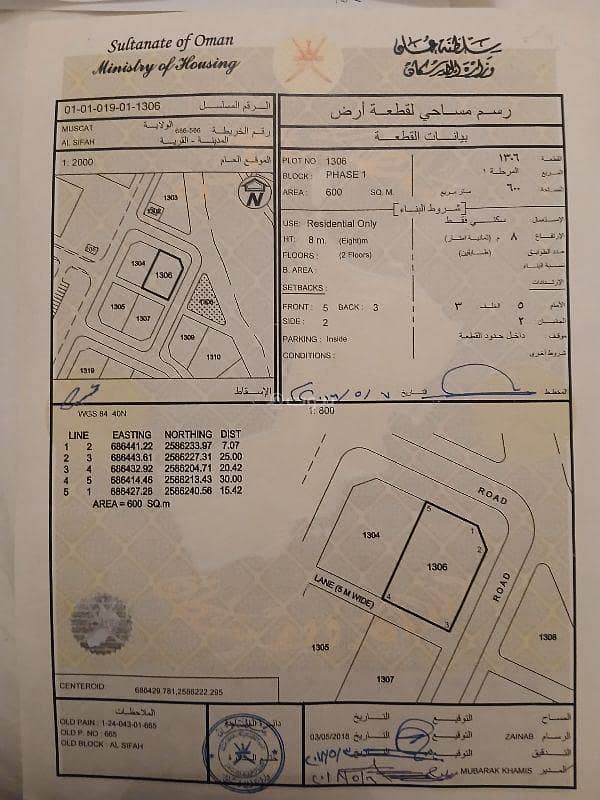 Sultanate of Oman
Ministry of Housing
سلطنة عمان
وزارة الإسكان
01-01-019-01-1306 الرقم المسلسل
MUSCAT الولاية
686-586 رقم الخريطة
AL SIFAH المدينة - القرية
1: 2000 الموقع العام
N
1303
1302
1304
1306
1305
1307
1309
1310
1319
الإسقاط
رسم مساحي لقطعة أرض
بيانات القطعة
PLOT NO 1306 ١٣٠٦ القطعة
BLOCK : PHASE 1 المرحلة ١ المربع
AREA : 600 SQ. M. متر مربع ٦٠٠ المساحة
شروط البناء
USE: Residential Only سكني فقط الإستعمال
HT: 8 m. (Eight)m ٨ م (ثمانية امتار) الإرتفاع
FLOORS : (2 Floors) (طابقين) عدد الطوابق
B. AREA : نسبة البناء
SETBACKS : الإرتدادات
FRONT : 5 BACK : 3 ٣ الخلف ٥ الأمام
SIDE : 2 ٢ الجانبان
PARKING : Inside داخل حدود القطعة موقف
CONDITIONS : شروط أخرى
التاريخ المخطط
WGS 84 40N
1: 800
LINE EASTING NORTHING DIST
1 2 686441.22 2586233.97 7.07
2 3 686443.61 2586227.31 25.00
3 4 686432.92 2586204.71 20.42
4 5 686414.46 2586213.43 30.00
5 1 686427.28 2586240.56 15.42
AREA = 600 SQ.m
ROAD
1304
5
1
2
1306
ROAD
LANE (5 M WIDE)
4
3
1305
1308
1307
CENTEROID: 686429.781,2586222.295
الملاحظات
OLD PAIN : 1-24-043-01-665
OLD P. NO : 665
OLD BLOCK : AL SIFAH
التاريخ التوقيع المساح
03/05/2018 التاريخ التوقيع ZAINAB الرسام
التوقيع التدقيق
MUBARAK KHAMIS المدير